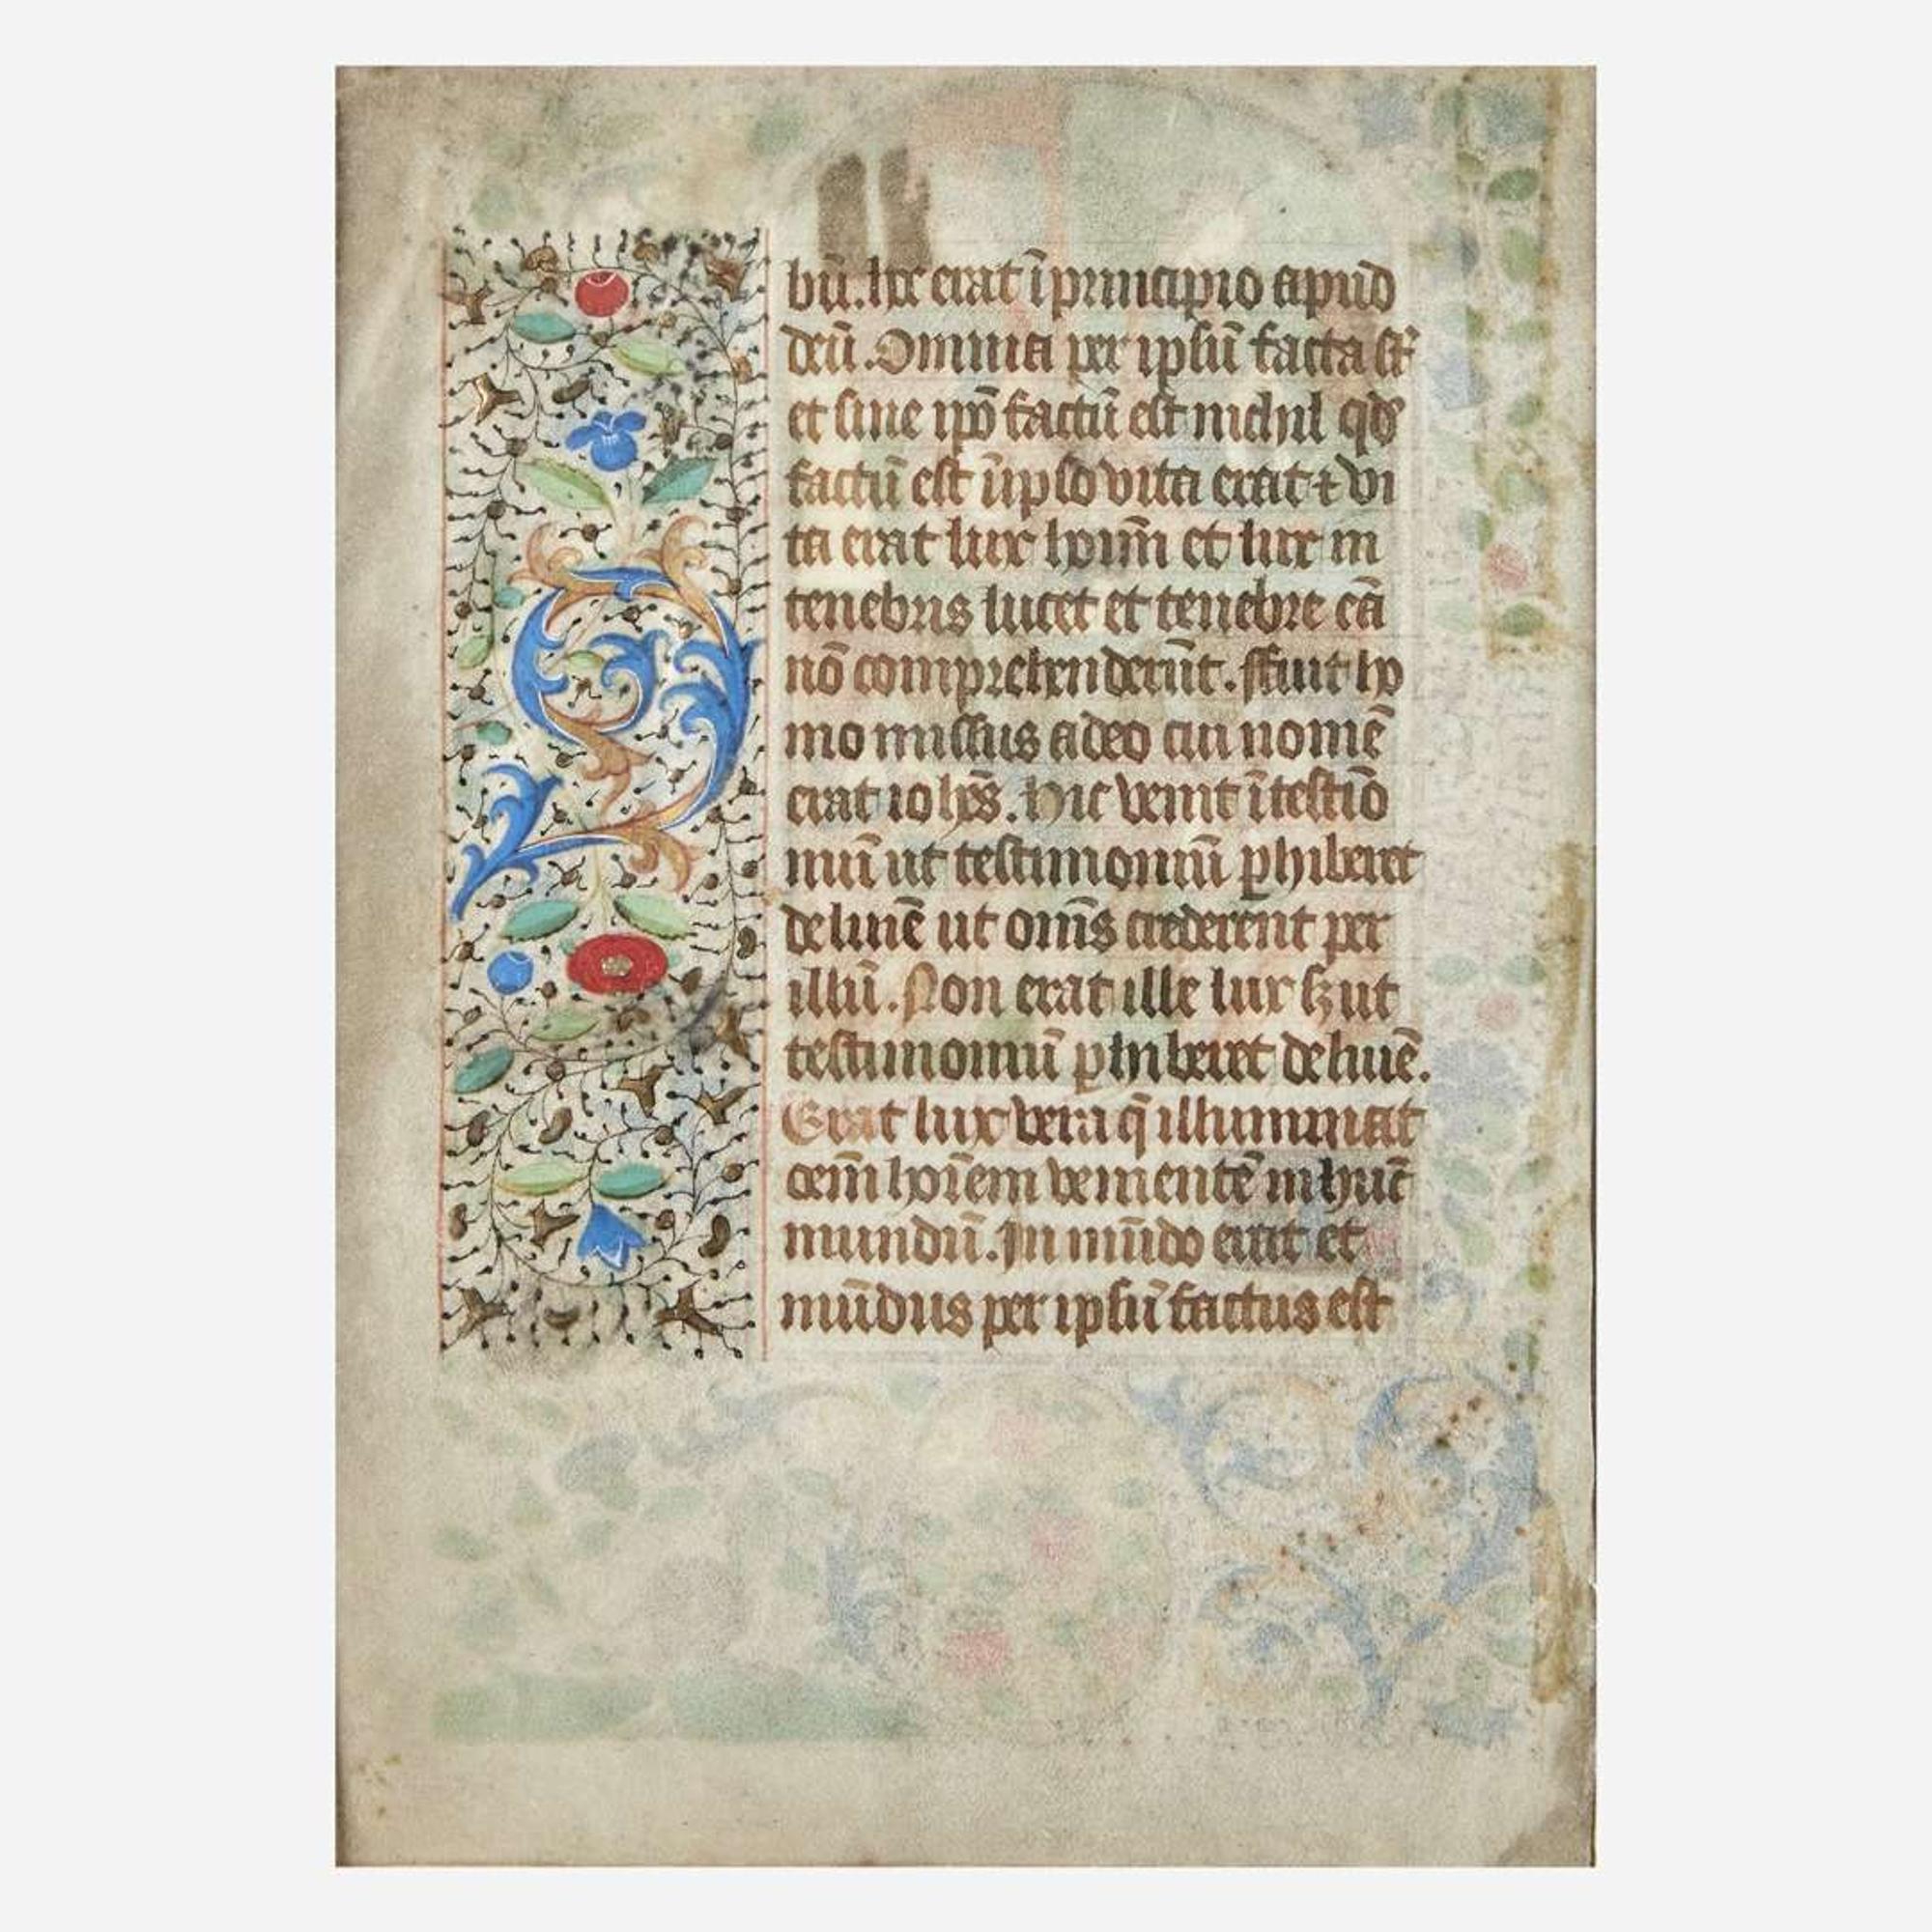 bū. hoc erat ī principio apud
deū. Omnia per ipsū facta sūt
et sine ipō factū est nichil qd
factū est ī ipso vita erat ⁊ vi
ta erat lux hoīm et lux in
tenebris lucet et tenebre eā
nō comprehenderūt. ffuit ho
mo missus a deo cui nomē
erat iohēs. Hic venit ī testīo
niū ut testimoniū ꝑhiberet
de lumē ut omīs crederent per
illū. Non erat ille lux sꝫ ut
testimoniū ꝑhiberet de lumē.
Erat lux vera q̄ illuminat
oēm hoīem venientē in hūc
mundū. In mūdo erat et
mūdus per ipsū factus est